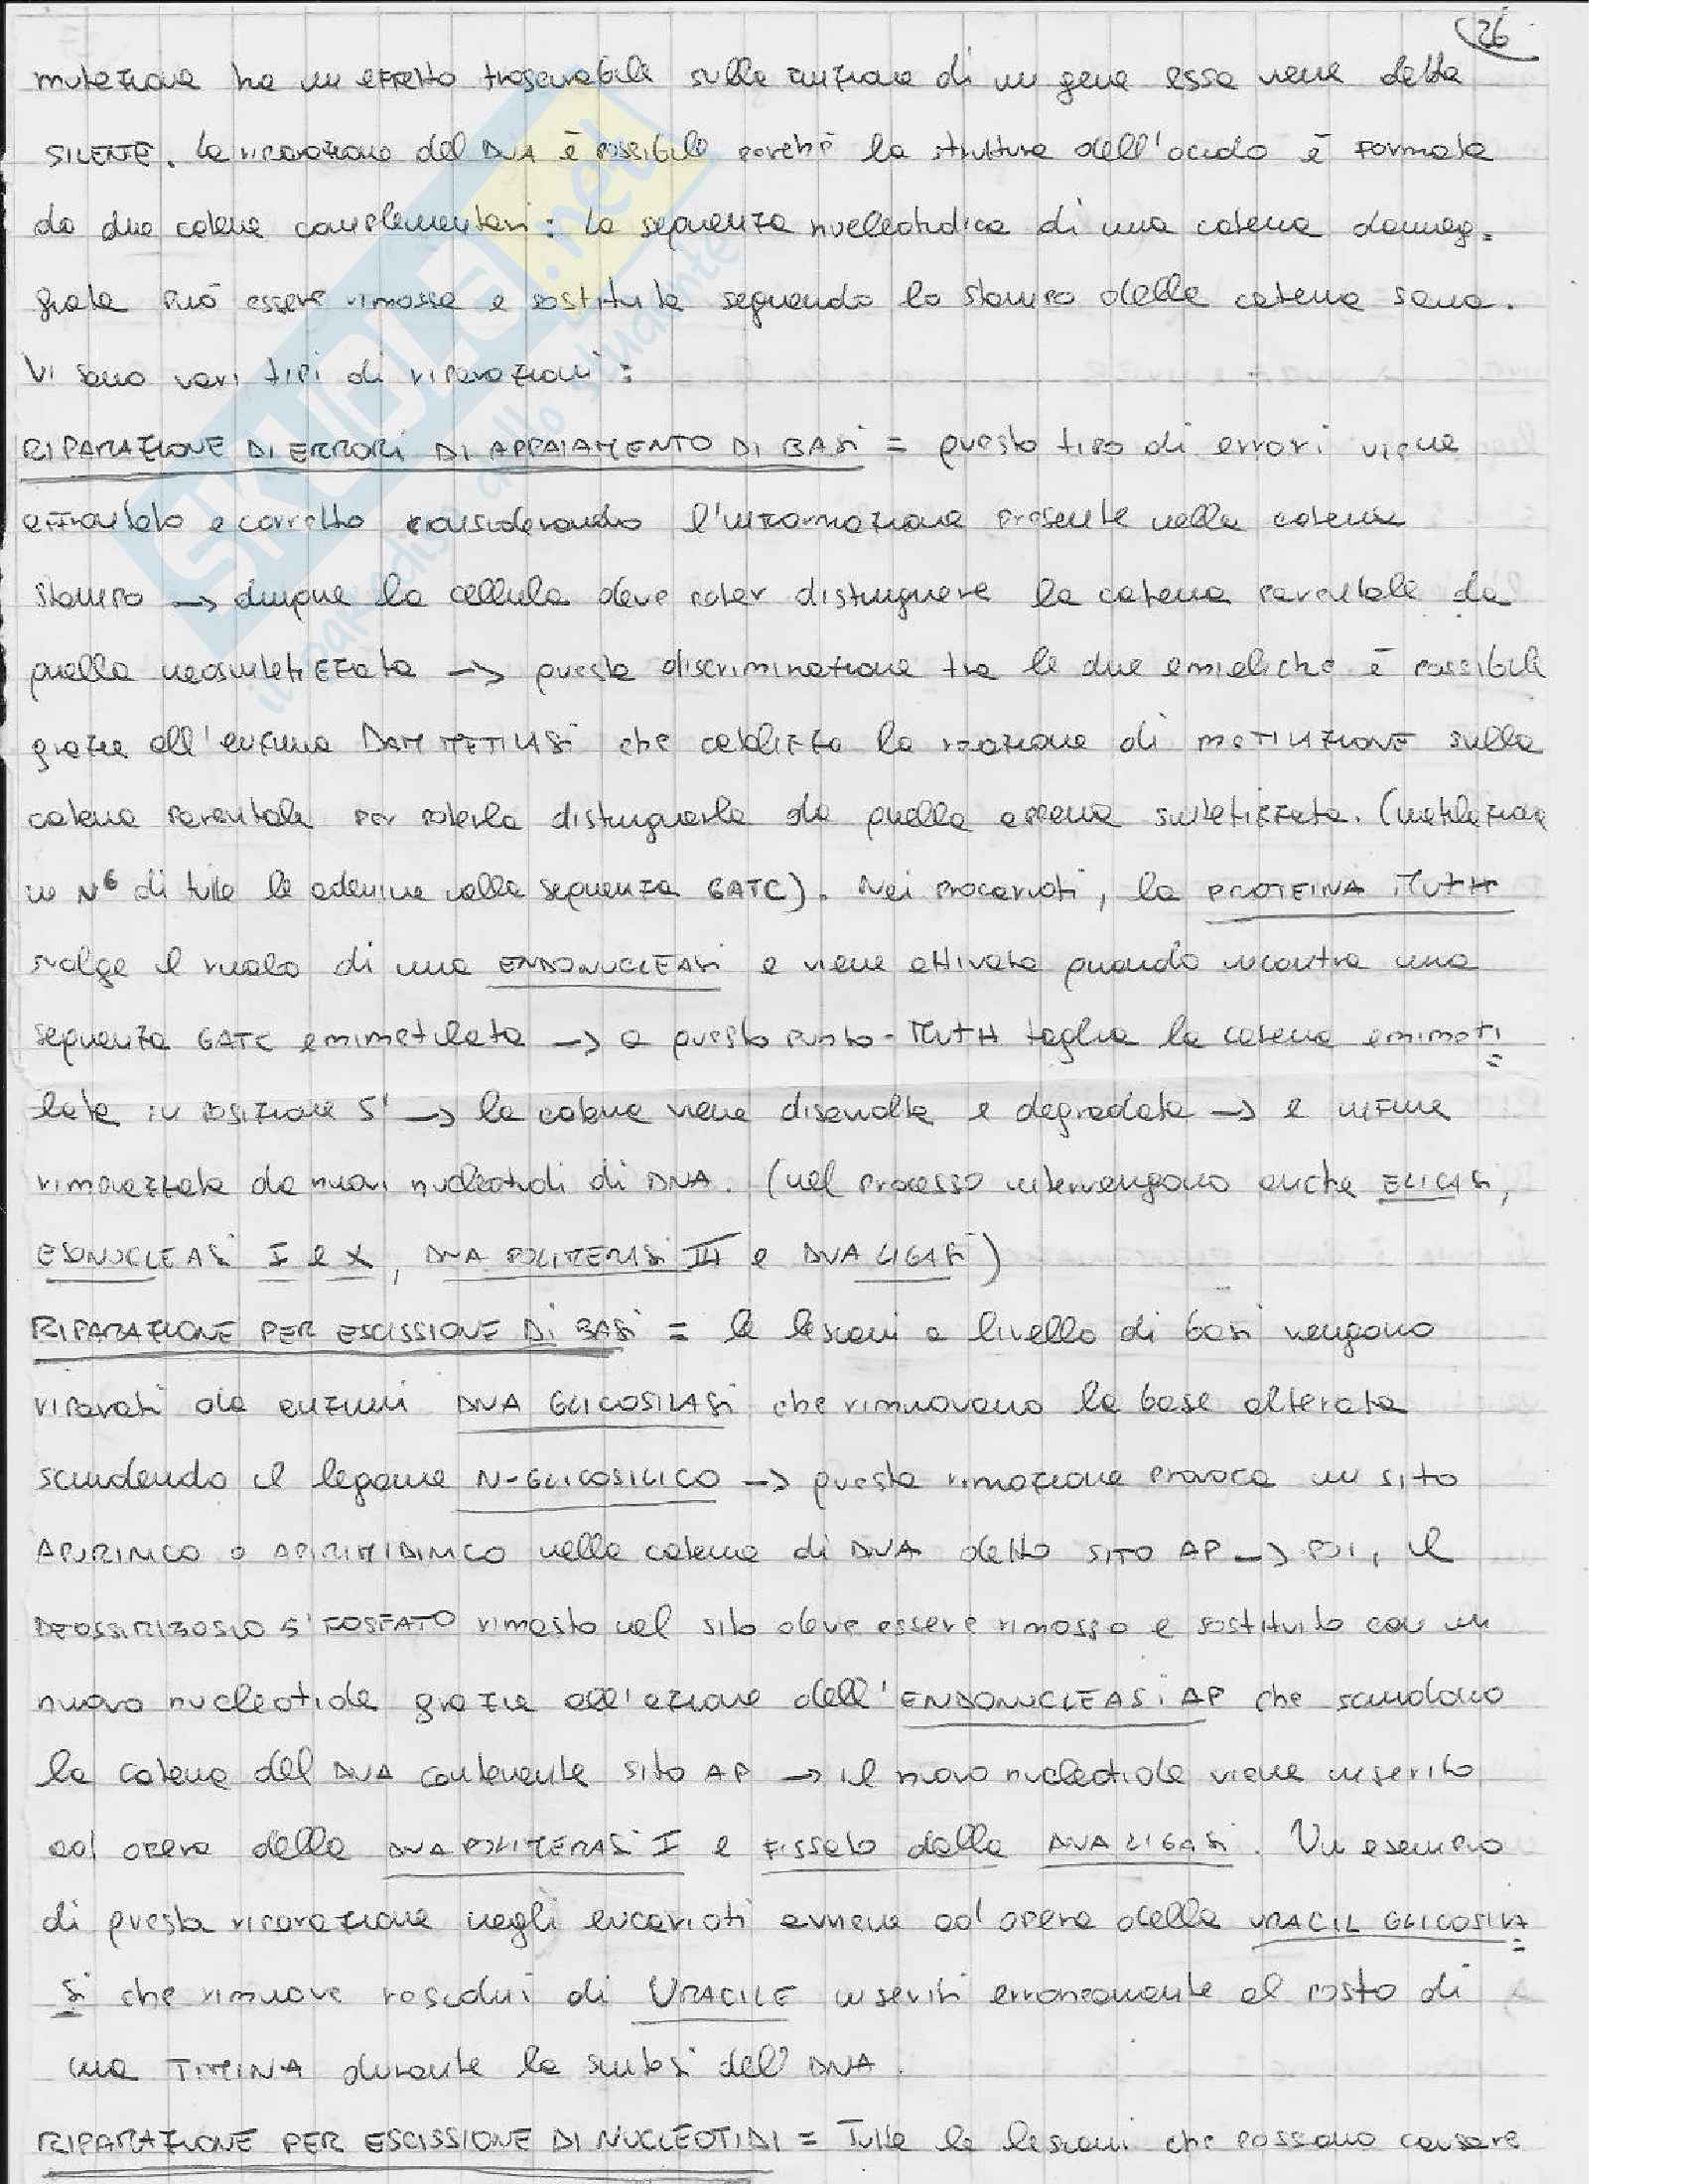 26
mutazione ha un effetto trascurabile sulla funzione di un gene essa viene detta
SILENTE. La riparazione del DNA è possibile perchè la struttura dell'acido è formata
da due catene complementari: la sequenza nucleotidica di una catena danneg=
giata può essere rimossa e sostituita seguendo lo stampo della catena sana.
Vi sono vari tipi di riparazioni:
RIPARAZIONE DI ERRORI DI APPAIAMENTO DI BASI = questo tipo di errori viene
affrontato e corretto considerando l'informazione presente nella catena
stampo → dunque la cellula deve poter distinguere la catena parentale da
quella neosintetizzata → questa discriminazione tra le due emieliche è possibile
grazie all'enzima DAM METILASI che catalizza la reazione di METILAZIONE sulla
catena parentale per poterla distinguerla da quella appena sintetizzata. (metilazione
in N⁶ di tutte le adenine nella sequenza GATC). Nei procarioti, la PROTEINA MutH
svolge il ruolo di una ENDONUCLEASI e viene attivata quando incontra una
sequenza GATC emimetilata → a questo punto - MutH taglia la catena emimeti=
lata in posizione 5' → la catena viene disavvolta e degradata → e infine
rimpiazzata da nuovi nucleotidi di DNA. (nel processo intervengono anche ELICASI,
ESONUCLEASI I e X, DNA POLIMERASI III e DNA LIGASI)
RIPARAZIONE PER ESCISSIONE DI BASI = le lesioni a livello di basi vengono
riparati da enzimi DNA GLICOSILASI che rimuovono la base alterata
scindendo il legame N-GLICOSILICO → questa rimozione provoca un sito
APURINICO o APIRIMIDINICO nella catena di DNA detto SITO AP → poi, il
DEOSSIRIBOSIO 5' FOSFATO rimasto nel sito deve essere rimosso e sostituito con un
nuovo nucleotide grazie all'azione dell'ENDONUCLEASI AP che scindono
la catena del DNA contenente sito AP → il nuovo nucleotide viene inserito
ad opera della DNA POLIMERASI I e fissato dalla DNA LIGASI. Un esempio
di questa riparazione negli eucarioti avviene ad opera della URACIL GLICOSILA=
SI che rimuove residui di URACILE inseriti erroneamente al posto di
una TIMINA durante la sintesi del DNA.
RIPARAZIONE PER ESCISSIONE DI NUCLEOTIDI = Tutte le lesioni che possono causare
SKUOLA.net
il paradiso dello studente